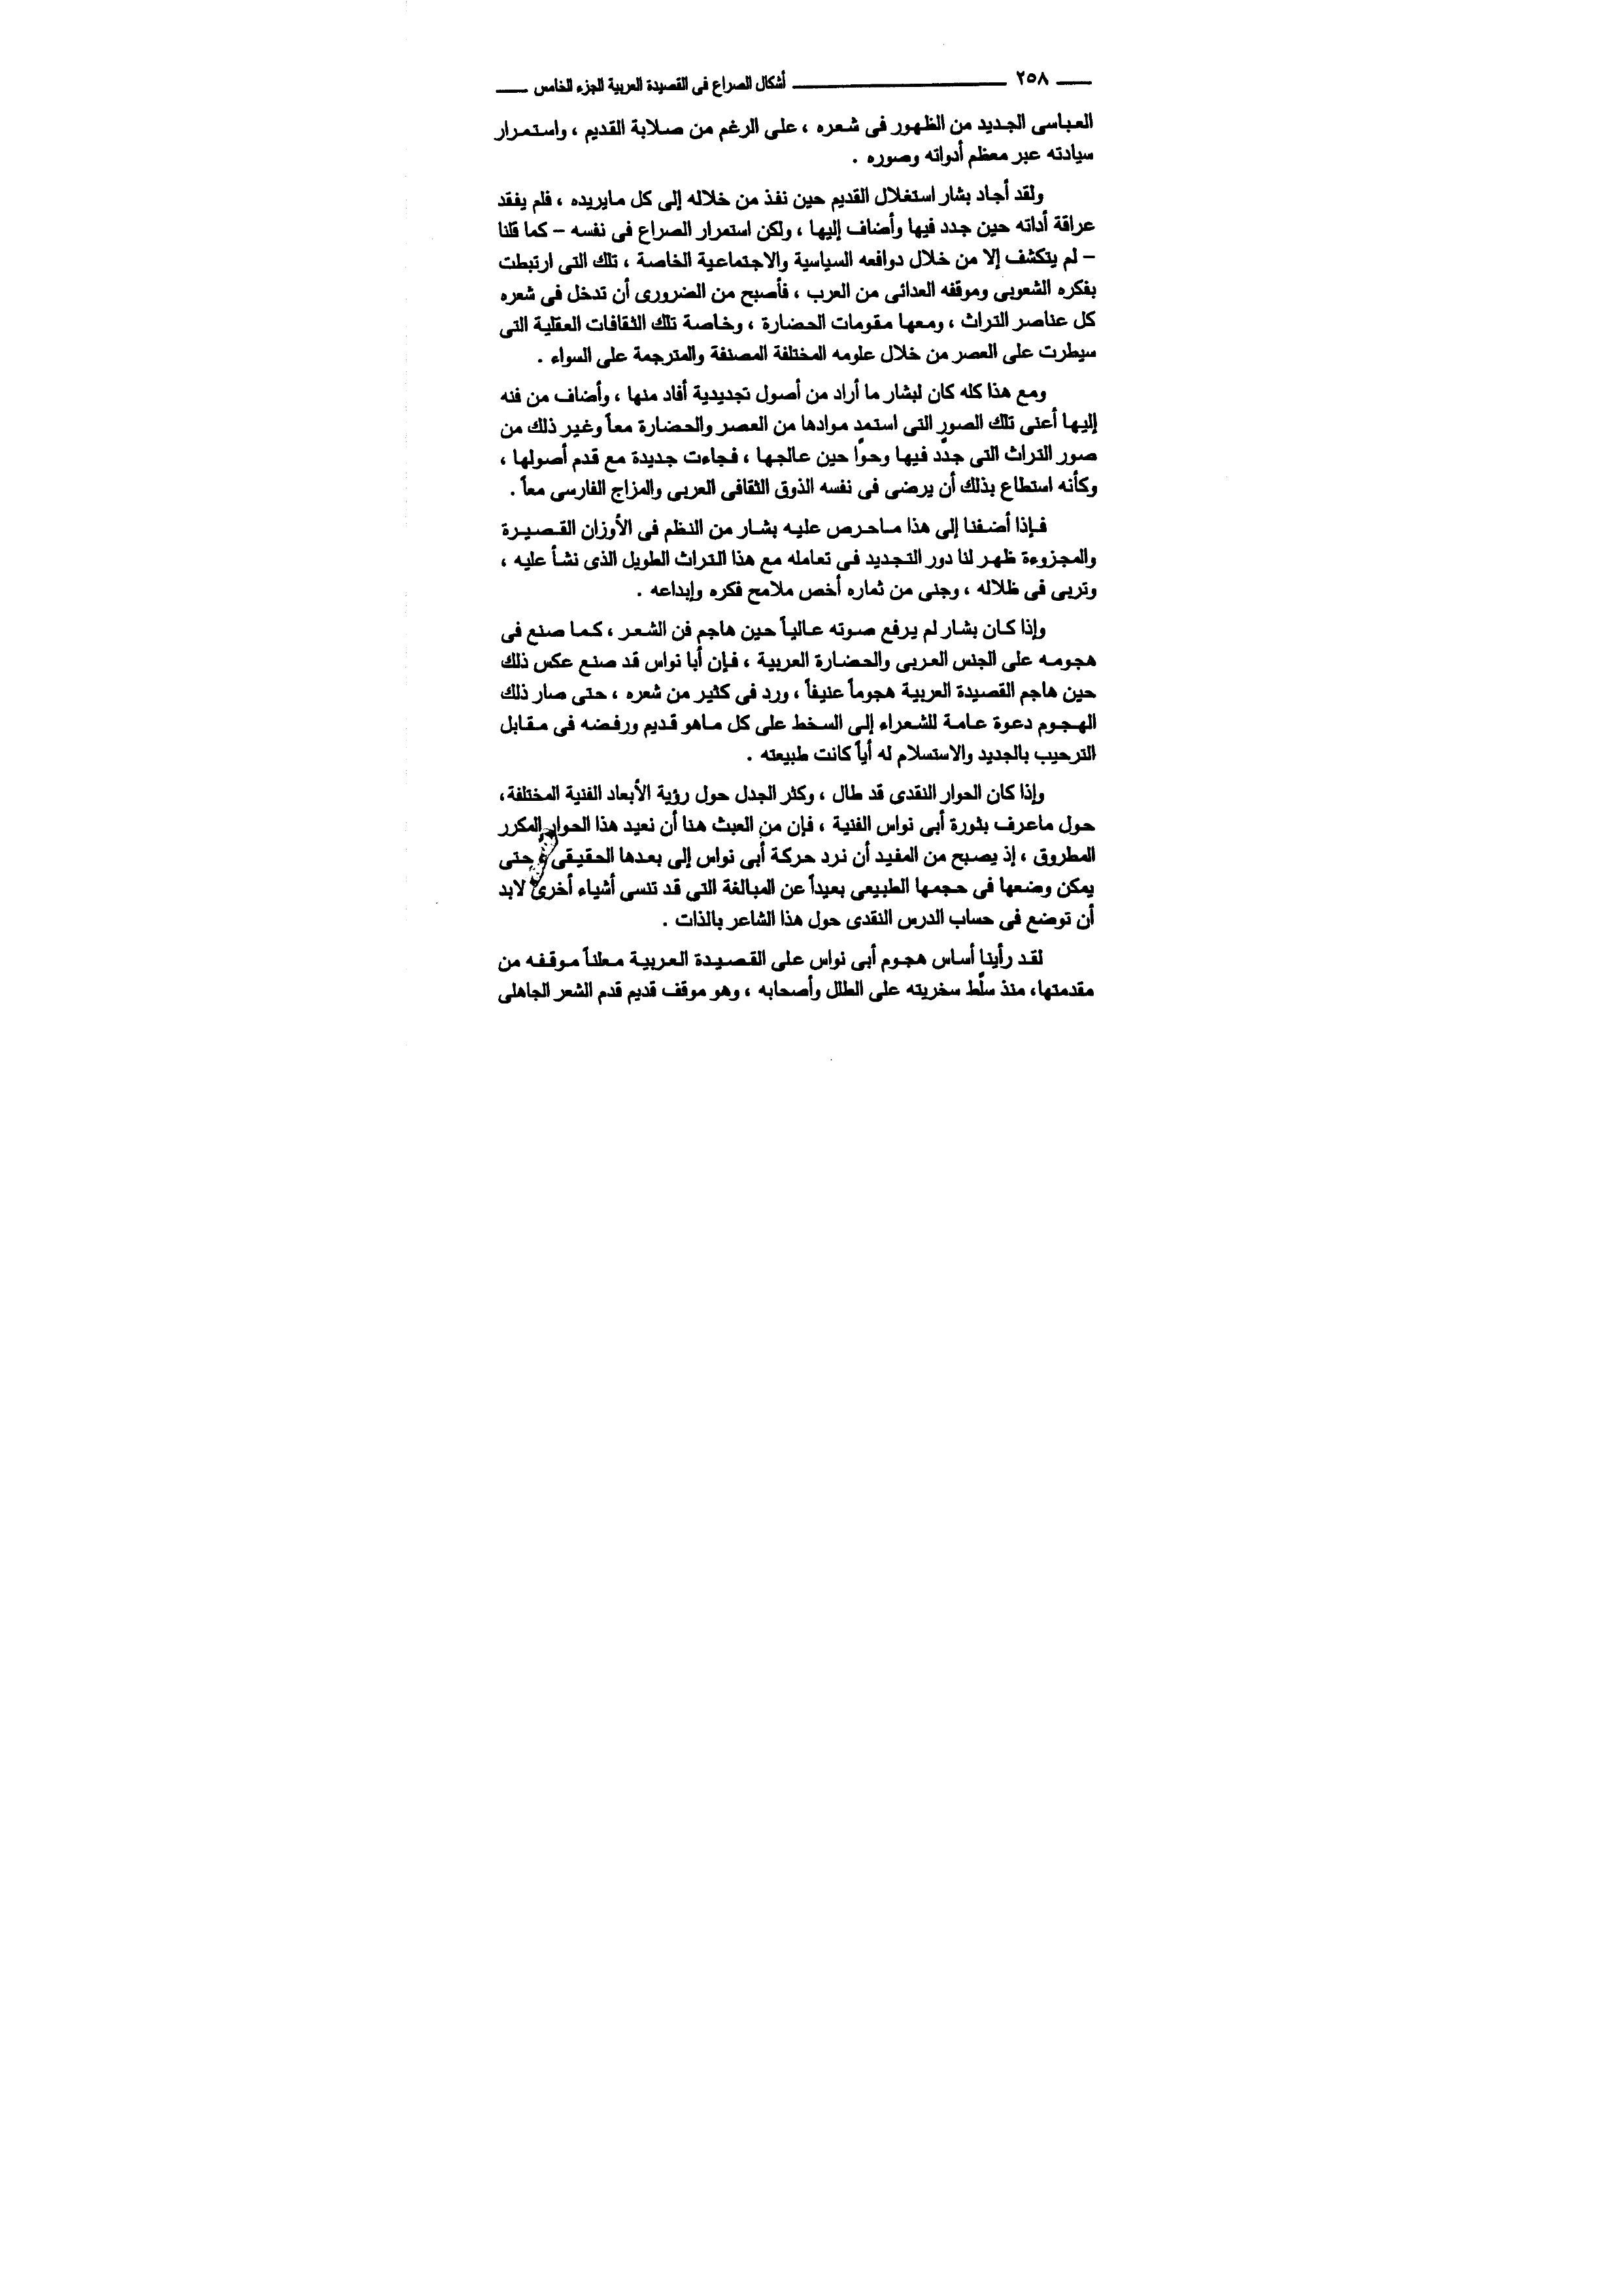 ٢٥٨ أشكال الصراع فى القصيدة العربية الجزء الخامس
العباسى الجديد من الظهور فى شعره ، على الرغم من صلابة القديم ، واستمرار
سيادته عبر معظم أدواته وصوره .
ولقد أجاد بشار استغلال القديم حين نفذ من خلاله إلى كل مايريده ، فلم يفقد
عراقة أداته حين جدد فيها وأضاف إليها ، ولكن استمرار الصراع فى نفسه – كما قلنا
– لم يتكشف إلا من خلال دوافعه السياسية والاجتماعية الخاصة ، تلك التى ارتبطت
بفكره الشعوبى وموقفه العدائى من العرب ، فأصبح من الضرورى أن تدخل فى شعره
كل عناصر التراث ، ومعها مقومات الحضارة ، وخاصة تلك الثقافات العقلية التى
سيطرت على العصر من خلال علومه المختلفة المصنفة والمترجمة على السواء .
ومع هذا كله كان لبشار ما أراد من أصول تجديدية أفاد منها ، وأضاف من فنه
إليها أعنى تلك الصور التى استمد موادها من العصر والحضارة معاً وغير ذلك من
صور التراث التى جدّد فيها وحوّا حين عالجها ، فجاءت جديدة مع قدم أصولها ،
وكأنه استطاع بذلك أن يرضى فى نفسه الذوق الثقافى العربى والمزاج الفارسى معاً .
فإذا أضفنا إلى هذا ماحرص عليه بشار من النظم فى الأوزان القصيرة
والمجزوءة ظهر لنا دور التجديد فى تعامله مع هذا التراث الطويل الذى نشأ عليه ،
وتربى فى ظلاله ، وجنى من ثماره أخص ملامح فكره وإبداعه .
وإذا كان بشار لم يرفع صوته عالياً حين هاجم فن الشعر ، كما صنع فى
هجومه على الجنس العربى والحضارة العربية ، فإن أبا نواس قد صنع عكس ذلك
حين هاجم القصيدة العربية هجوماً عنيفاً ، ورد فى كثير من شعره ، حتى صار ذلك
الهجوم دعوة عامة للشعراء إلى السخط على كل ماهو قديم ورفضه فى مقابل
الترحيب بالجديد والاستسلام له أياً كانت طبيعته .
وإذا كان الحوار النقدى قد طال ، وكثر الجدل حول رؤية الأبعاد الفنية المختلفة،
حول ماعرف بثورة أبى نواس الفنية ، فإن من العبث هنا أن نعيد هذا الحوار المكرر
المطروق ، إذ يصبح من المفيد أن نرد حركة أبى نواس إلى بعدها الحقيقى حتى
يمكن وضعها فى حجمها الطبيعى بعيداً عن المبالغة التى قد تنسى أشياء أخرى لابد
أن توضع فى حساب الدرس النقدى حول هذا الشاعر بالذات .
لقد رأينا أساس هجوم أبى نواس على القصيدة العربية معلناً موقفه من
مقدمتها، منذ سلّط سخريته على الطلل وأصحابه ، وهو موقف قديم قدم الشعر الجاهلى